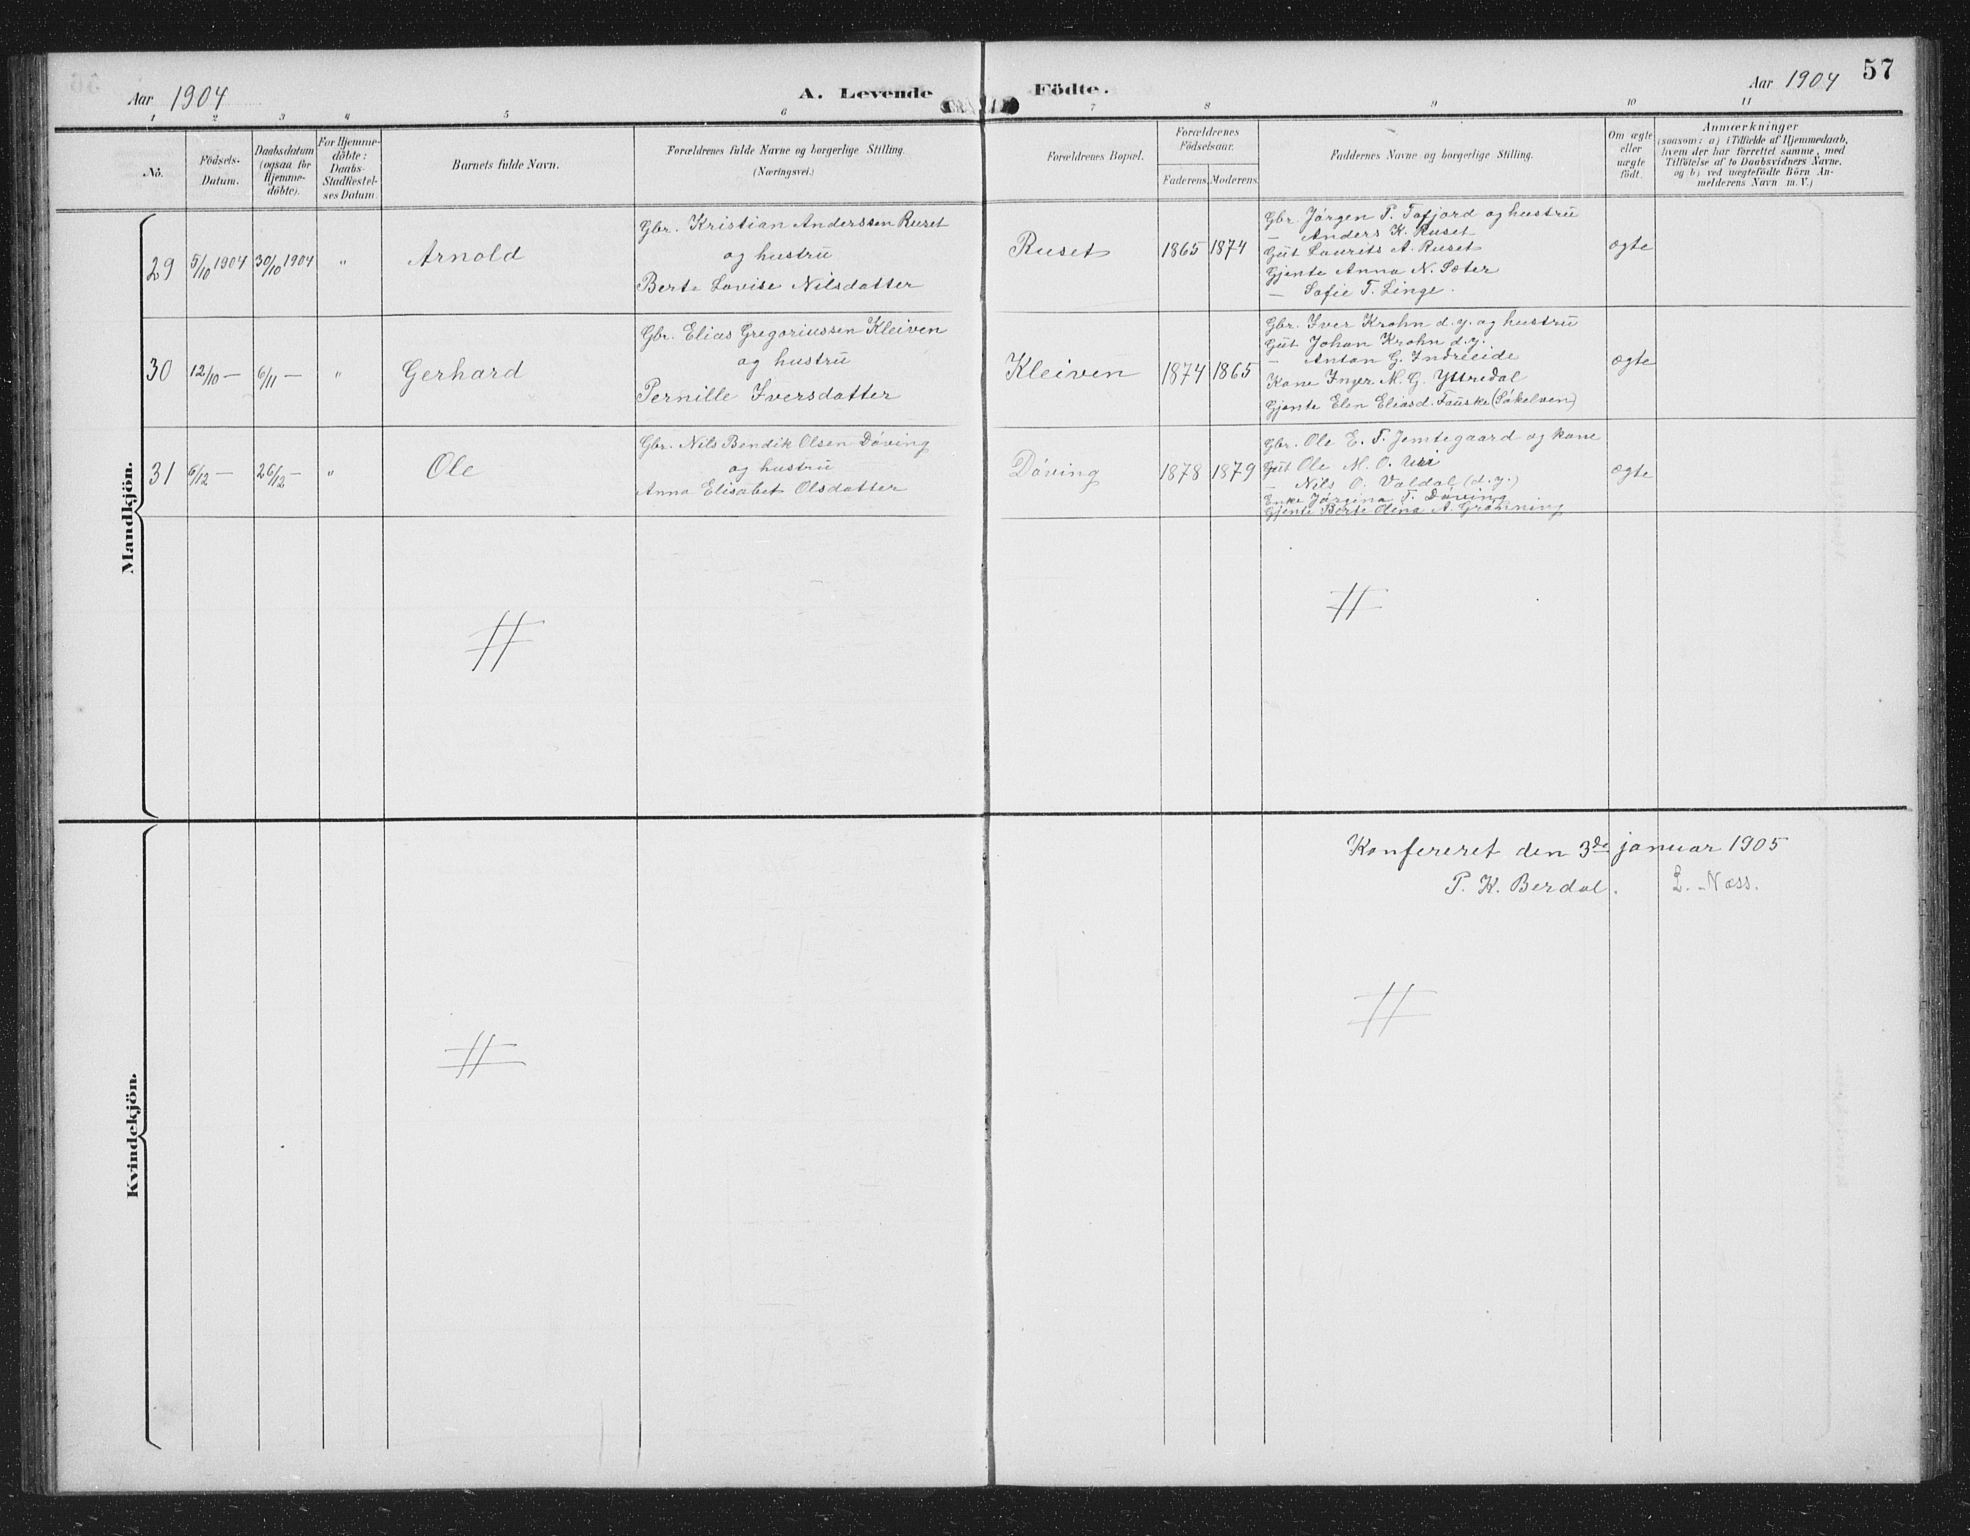 Aar 1904
A. Levende Födte.
Aar 1904
57
1 2 3 4 5 6 7 8 9 10 11
No.
Födsels-
Datum.
Daabsdatum
(ogsaa for
Hjemme-
döbte).
For Hjemme-
döbte:
Daabs-
Stadfestel-
ses Datum.
Barnets fulde Navn.
Forældrenes fulde Navne og borgerlige Stilling.
(Næringsvei.)
Forældrenes Bopæl.
Forældrenes
Födselsaar.
Faderens. Moderens.
Faddernes Navne og borgerlige Stilling.
Om ægte
eller
uægte
födt.
Anmærkninger
(saasom: a) i Tilfælde af Hjemmedaab,
hvem der har forrettet samme, med
Tilföielse af to Daabsvidners Navne.
og b) ved uægtefödte Börn An-
melderens Navn m. V.)
Mandkjön.
29 5/10 1904 30/10 1904 " Arnold
Gbr. Kristian Anderssen Ruset
og hustru
Berte Lovise Nilsdatter
Ruset 1865 1874
Gbr. Jörgen P. Tafjord og hustru
— Anders K. Ruset
Gut Laurits A. Ruset
Gjente Anna N. Sæter
— Sofie T. Linge.
ægte
30 12/10 — 6/11 — " Gerhard
Gbr. Elias Gregoriussen Kleiven
og hustru
Pernille Iversdatter
Kleiven 1874 1865
Gbr. Iver Krohn d.y. og hustru
Gut Johan Krohn d.y.
— Anton G. Indreeide
Kone Inger M. G. Yttredal
Gjente Elen Eliasd. Fauske (Sökelven)
ægte
31 6/12 — 26/12 — " Ole
Gbr. Nils Bendik Olsen Döving
og hustru
Anna Elisabet Olsdatter
Döving 1878 1879
Gbr. Ole E. T. Jemtegaard og kone
Gut Ole M. O. Uri
— Nils O. Valdal (d.y.)
Enke Jörgina T. Döving
Gjente Berte Olina A. Gröning
ægte
Kvindekjön.
Konfereret den 3de januar 1905
P. K. Berdal. L. Næss.